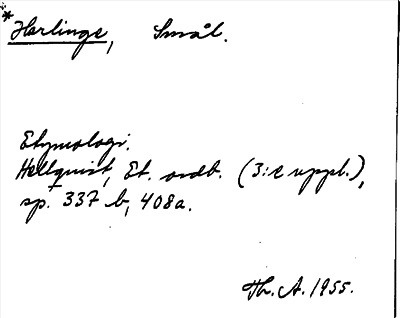 *Harlinge, Smål.
Etymologi.
Hellquist, Et. ordb. (3:e uppl.),
sp. 337 b, 408a.
Th. A. 1955.